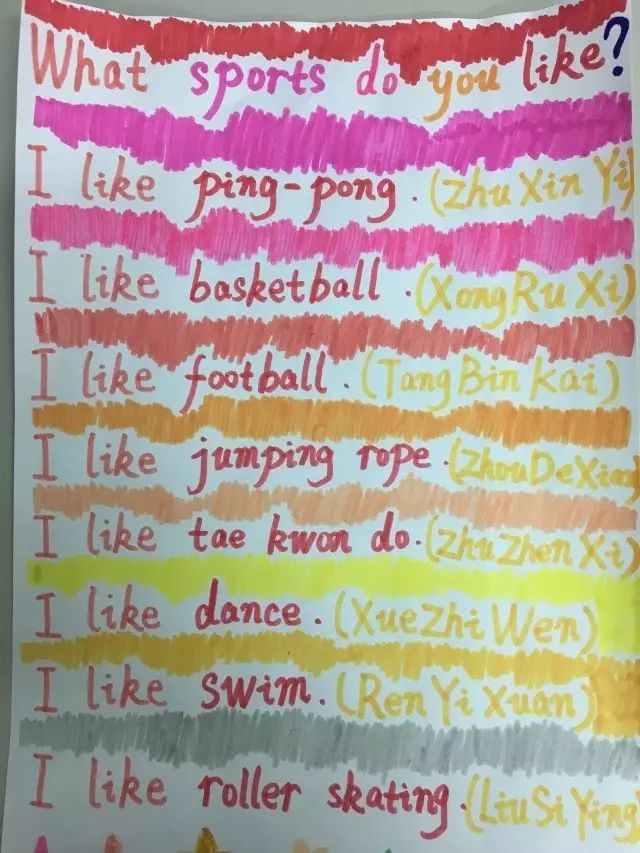 What sports do you like?
I like ping-pong. (Zhu Xin Yi)
I like basketball. (Xong Ru Xi)
I like football. (Tang Bin Kai)
I like jumping rope. (Zhou De Xian
I like tae kwon do. (Zhu Zhen Xi)
I like dance. (Xue Zhi Wen)
I like swim. (Ren Yi Xuan)
I like roller skating. (Liu Si Ying)